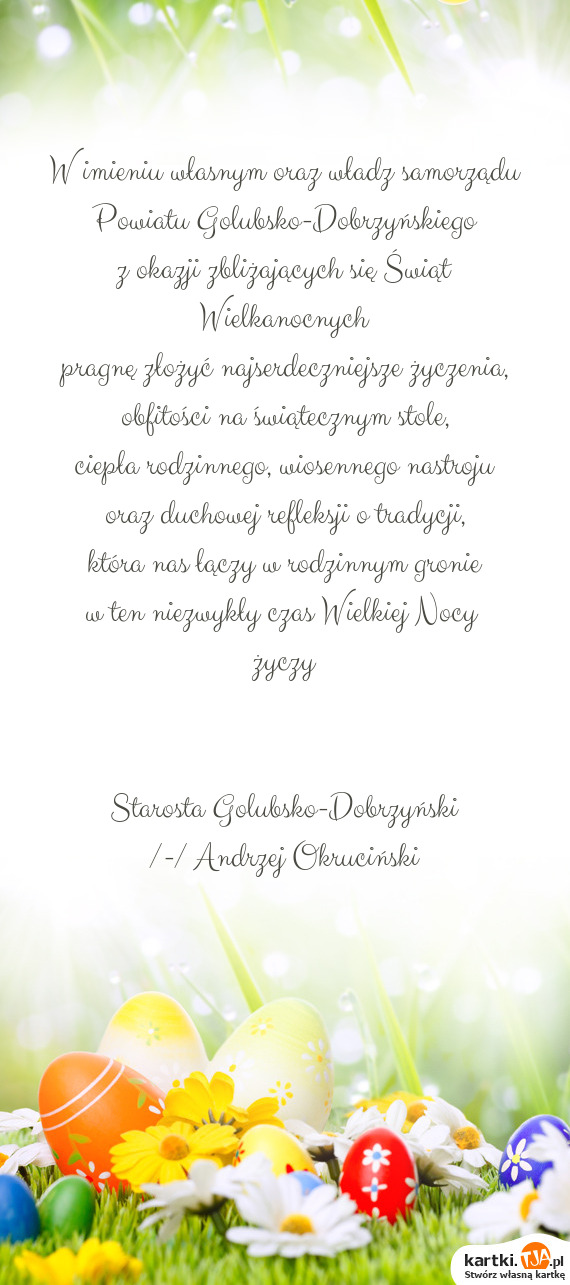 W imieniu własnym oraz władz samorządu
Powiatu Golubsko-Dobrzyńskiego
z okazji zbliżających się Świąt
Wielkanocnych
pragnę złożyć najserdeczniejsze życzenia,
obfitości na świątecznym stole,
ciepła rodzinnego, wiosennego nastroju
oraz duchowej refleksji o tradycji,
która nas łączy w rodzinnym gronie
w ten niezwykły czas Wielkiej Nocy
życzy
Starosta Golubsko-Dobrzyński
/-/ Andrzej Okruciński
kartki.TJA.pl
Stwórz własną kartkę